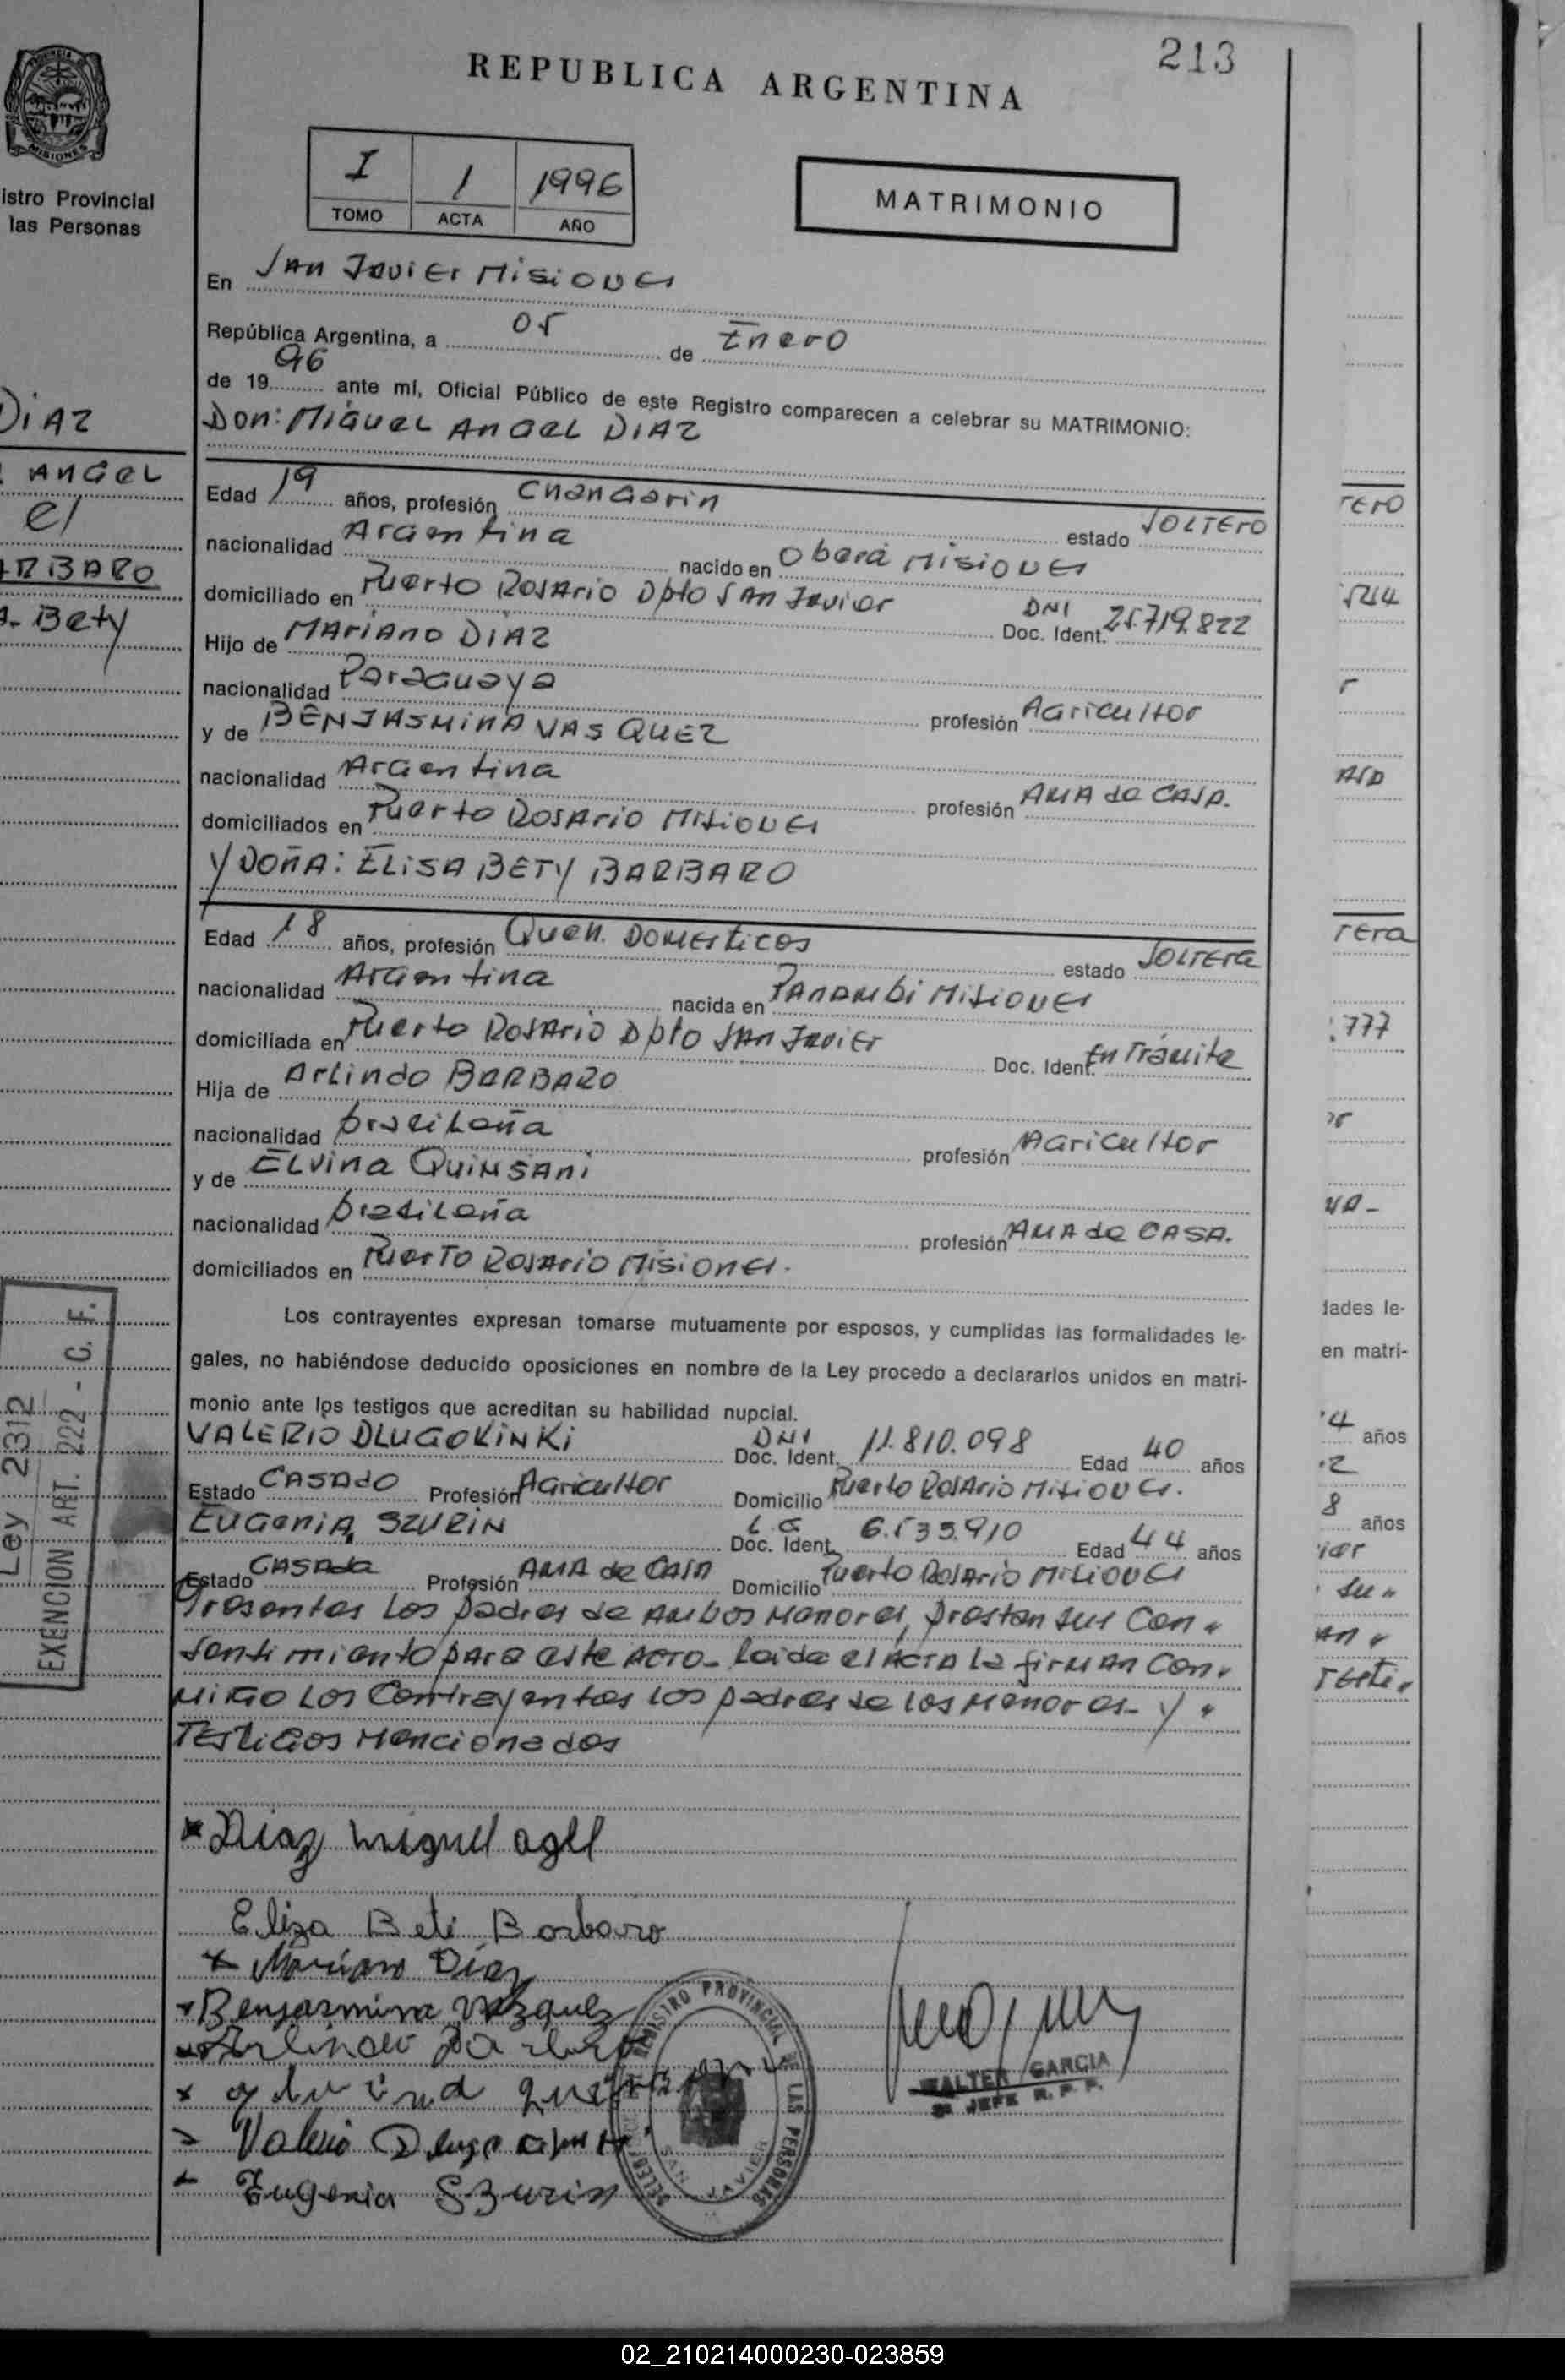 213
REPUBLICA ARGENTINA
MISIONES
istro Provincial
las Personas
I 1 1996
TOMO ACTA AÑO
MATRIMONIO
En San Javier Misiones
República Argentina, a 05 de Enero
de 1996 ante mí, Oficial Público de este Registro comparecen a celebrar su MATRIMONIO:
Don: Miguel Angel DIAZ
DIAZ
ANGEL
c/
ARBARO
Bety
Edad 19 años, profesión Changarin estado SOLTERO
nacionalidad Argentina nacido en Oberá Misiones
domiciliado en Puerto Rosario Dpto San Javier DNI Doc. Ident. 25.719.822
Hijo de Mariano DIAZ
nacionalidad Paraguaya profesión Agricultor
y de BENJASMINA VASQUEZ
nacionalidad Argentina profesión AMA de CASA.
domiciliados en Puerto Rosario Misiones
Y DOÑA: ELISA BETY BARBARO
Edad 18 años, profesión Queh. Domesticos estado SOLTERA
nacionalidad Argentina nacida en Panambi Misiones
domiciliada en Puerto Rosario Dpto San Javier Doc. Ident. En Trámite
Hija de Arlindo BARBARO
nacionalidad brasileña profesión Agricultor
y de ELVINA QUINSANI
nacionalidad brasileña profesión AMA de CASA.
domiciliados en Puerto Rosario Misiones.
Los contrayentes expresan tomarse mutuamente por esposos, y cumplidas las formalidades le-
gales, no habiéndose deducido oposiciones en nombre de la Ley procedo a declararlos unidos en matri-
monio ante los testigos que acreditan su habilidad nupcial.
VALERIO DLUGOKINKI DNI Doc. Ident. 11.810.098 Edad 40 años
Estado CASADO Profesión Agricultor Domicilio Puerto Rosario Misiones.
EUGENIA SZURIN L.C Doc. Ident. 6.535.910 Edad 44 años
Estado CASADA Profesión AMA de CASA Domicilio Puerto Rosario Misiones
Presentes Los padres de Ambos Menores, prestan sus Con
sentimiento para este ACTO- Leida el ACTA la firman Con
migo Los Contrayentes los padres de los Menores- y
Testigos Mencionados
Ley 2312
EXENCION ART. 222 - C. F.
Diaz miguel agel
Eliza Beti Barbaro
Mariano Diaz
Benjasmina Vazquez
Valerio
Eugenia Szurin
REGISTRO PROVINCIAL DE LAS PERSONAS
SAN JAVIER
WALTER GARCIA
JEFE R. P. P.
TERO
ASD
TERA
777
dades le-
en matri-
4 años
2
8 años
02_210214000230-023859